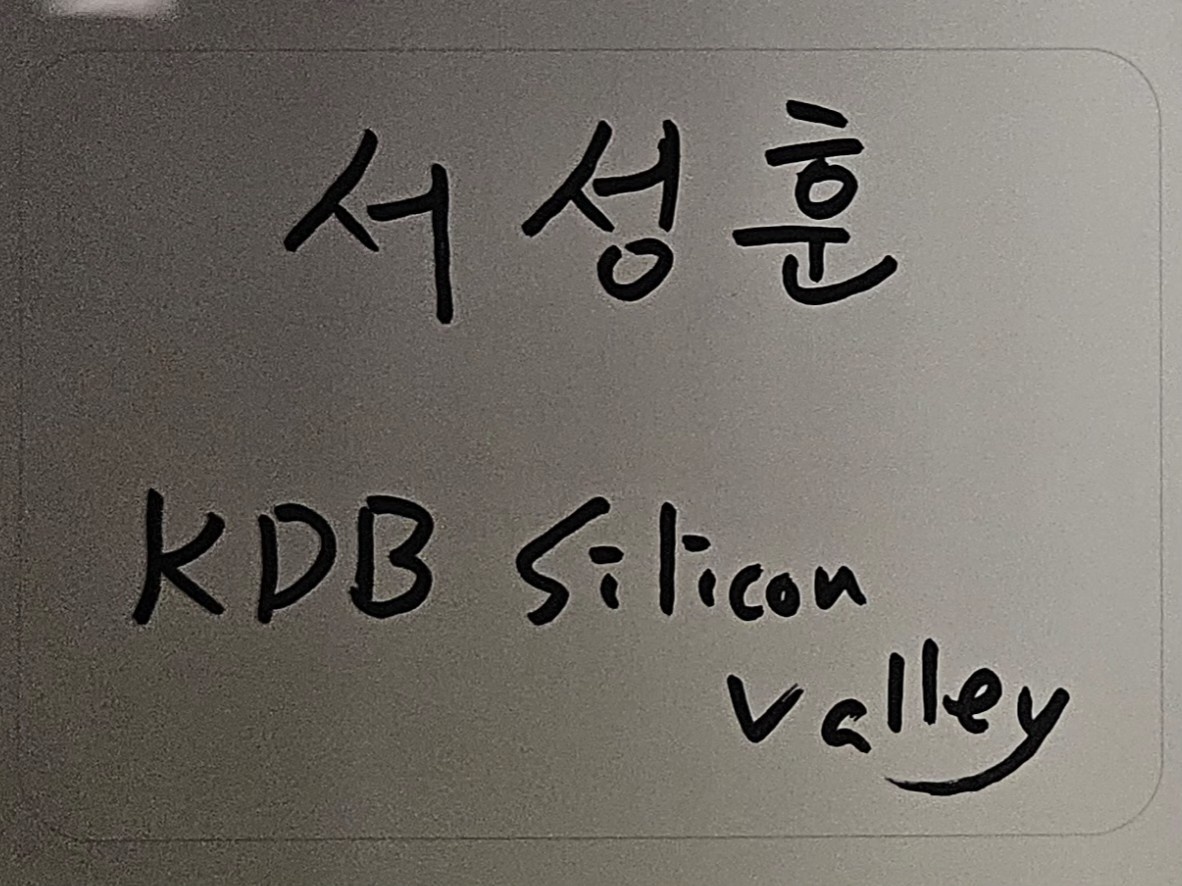 서성훈
KDB Silicon
Valley